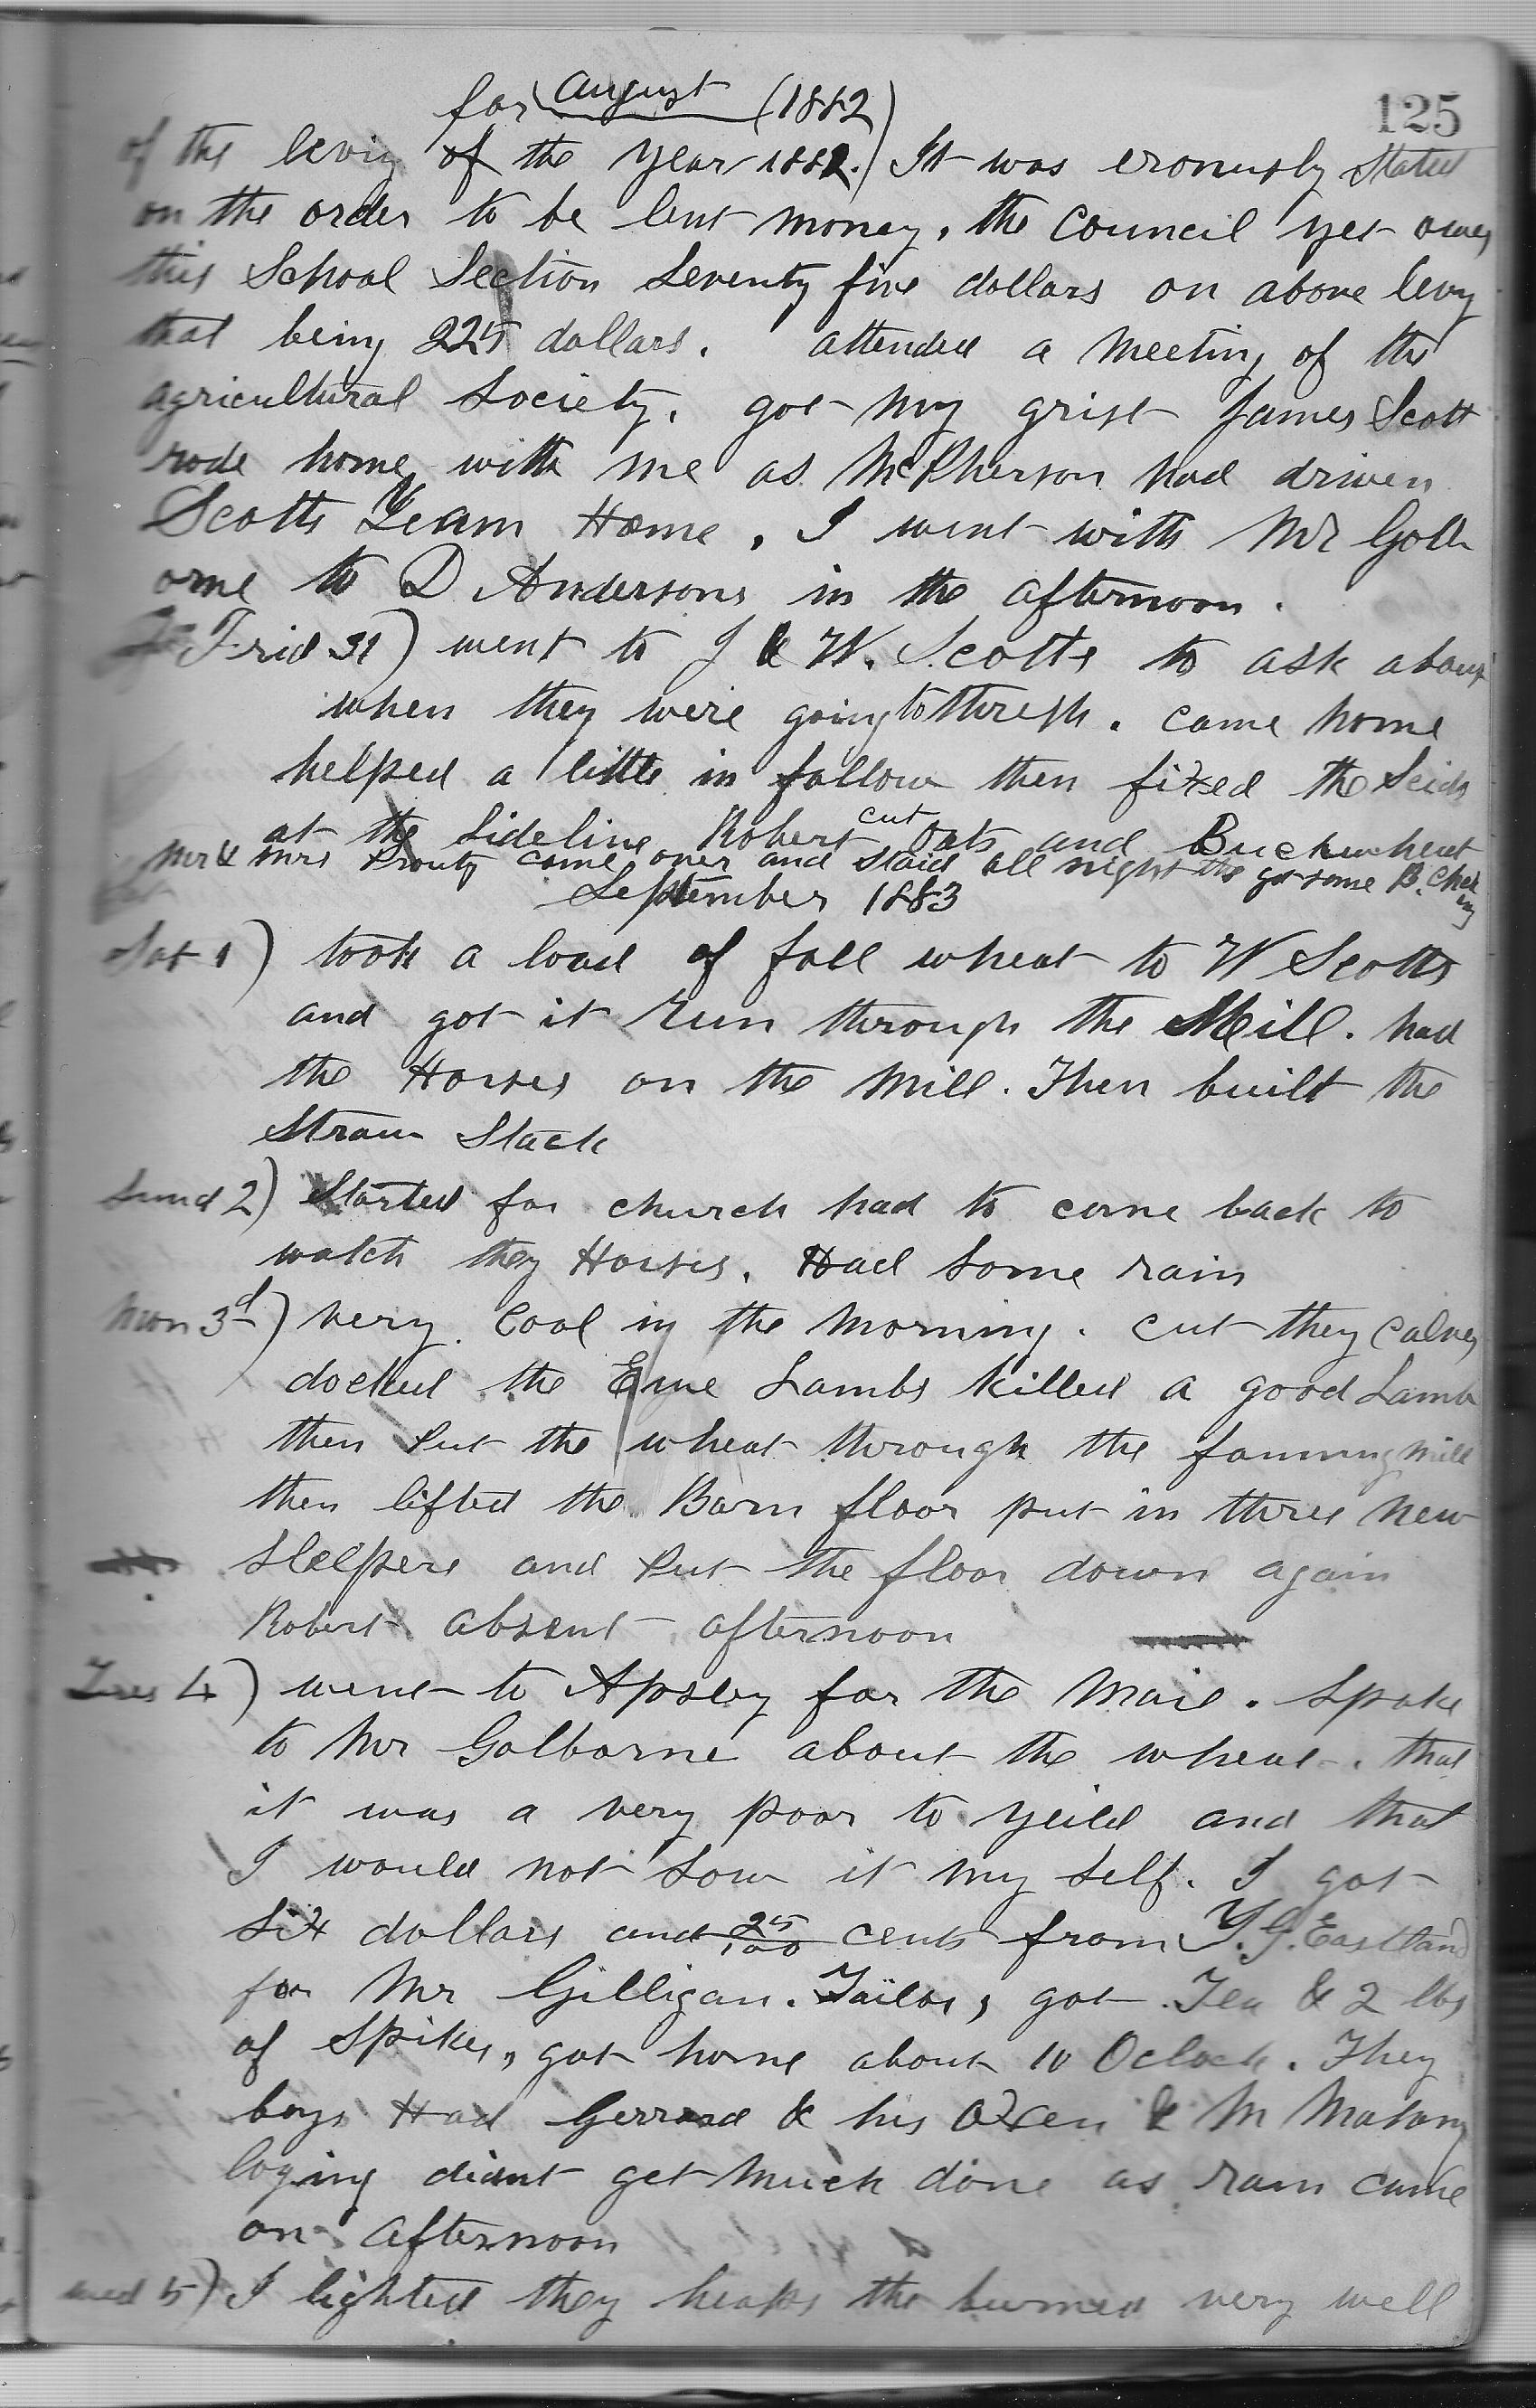 125
for August (1882)
of the leviy of the year 1882.) It was eronusly stated
on the order to be lent money, the Council yet owes
this School Section Seventy five dollars on above levy
that being 225 dollars. attended a Meeting of the
agricultural Society. got my grist James Scott
rode home with me as McPherson had driven
Scotts Team Home. I went with Mr Golb
orne to D Andersons in the afternoon.
Frid 31) went to J & W. Scotts to ask about
when they were going to thresh. came home
helped a little in fallow then fixed the
at the Sideline Robert cut Oats and Buckwheat
Mr & Mrs Prouty came over and staid all night to get some B. Cher
ry
September 1883
Sat 1) took a load of fall wheat to W Scotts
and got it run through the Mill. had
the Horses on the Mill. Then built the
Straw Stack
Sund 2) Started for church had to come back to
watch they Horses. Had some rain
Mon 3d) very Cool in the Morning. cut they Calves
docked the Ewe Lambs killed a good Lamb
then put the wheat through the faning mill
then lifted the Barn floor put in three New
Sleepers and put the floor down again
Robert absent afternoon
Tues 4) went to Apsley for the Mail. Spoke
to Mr Golborne about the wheat. that
it was a very poor to yeild and that
I would not sow it my self. I got
six dollars and 25/100 cents from T.G. Eastland
for Mr Gilligan. Tailor, got Tea & 2 lbs
of Spikes, got home about 10 Oclock. They
boys Had Gerrard & his Oxen & M Mahony
loging didnt get much done as rain came
on afternoon
wed 5) I lighted they heaps the burned very well